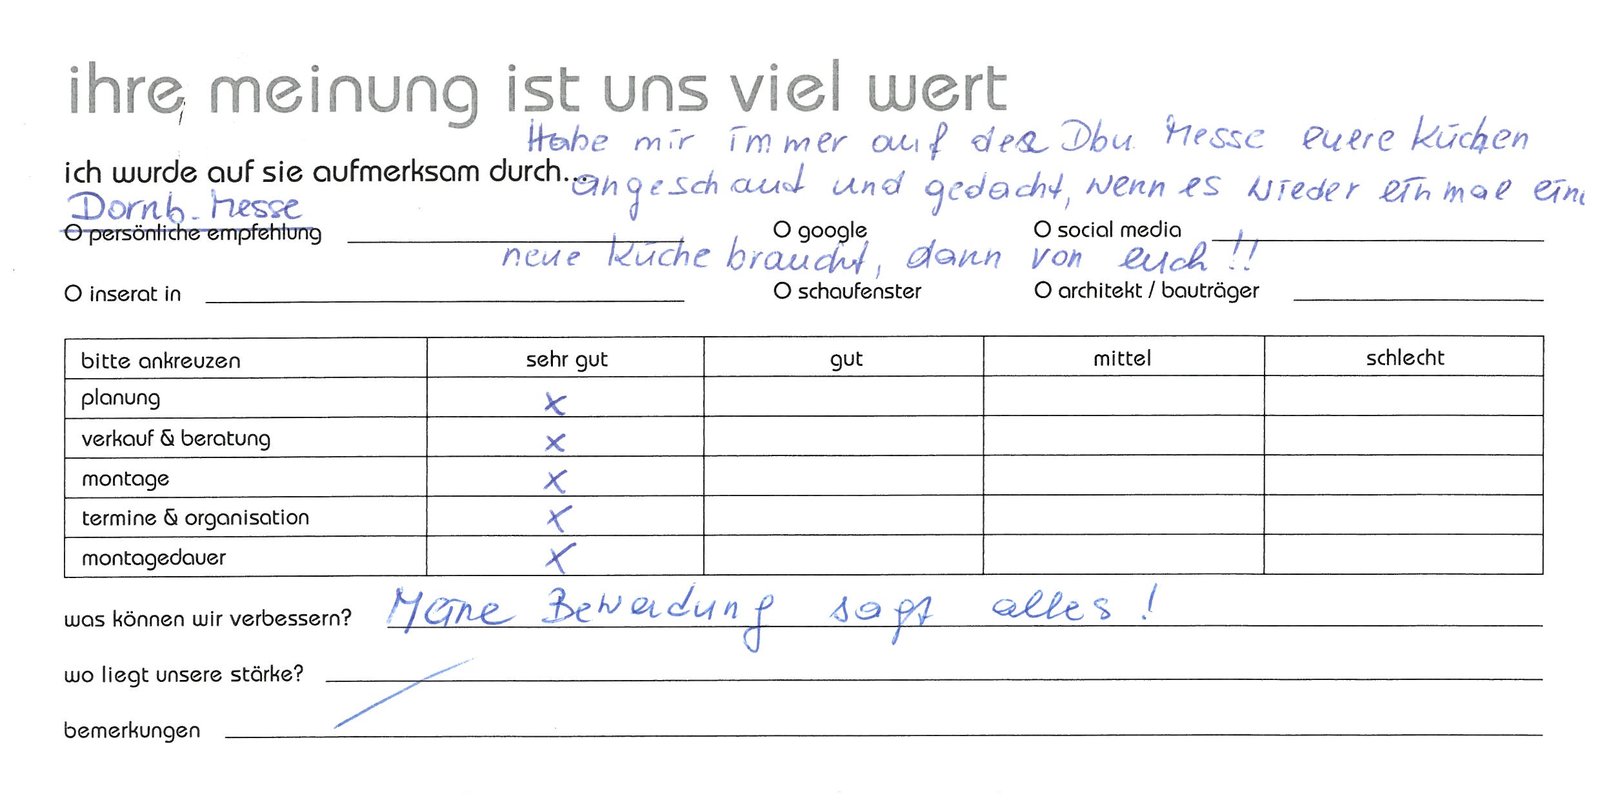 ihre meinung ist uns viel wert
Habe mir immer auf der Dbn Messe euere Küchen
ich wurde auf sie aufmerksam durch...
angeschaut und gedacht, wenn es wieder einmal eine
Dornb. Messe
O persönliche empfehlung O google O social media
neue Küche braucht, dann von euch!!
O inserat in O schaufenster O architekt / bauträger
bitte ankreuzen sehr gut gut mittel schlecht
planung x
verkauf & beratung x
montage x
termine & organisation x
montagedauer x
was können wir verbessern? Meine Bewerdung sagt alles!
wo liegt unsere stärke?
bemerkungen